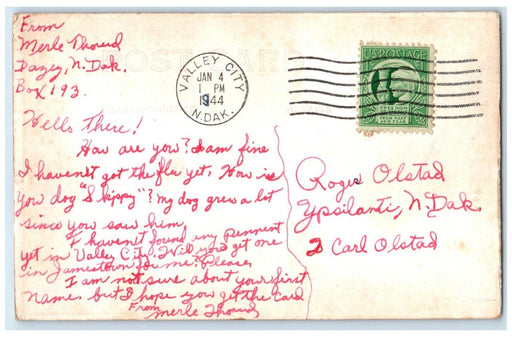 From
Merle Thorud
Dazey, N. Dak.
Box 193.
POST CARD
VALLEY CITY
JAN 4
1 PM
1944
N.DAK.
U.S. POSTAGE
1¢
Hello There!
How are you? I am fine
I haven't got the flu yet. How is
you dog "Skippy"? My dog grew a lot
since you saw him,
I haven't found any pennent
yet in Valley City. Will you get one
in Jamestown for me? Please,
I am not sure about your first
name. but I hope you get the card
From
Merle Thorud
Roger Olstad
Ypsilanti, N. Dak.
Carl Olstad